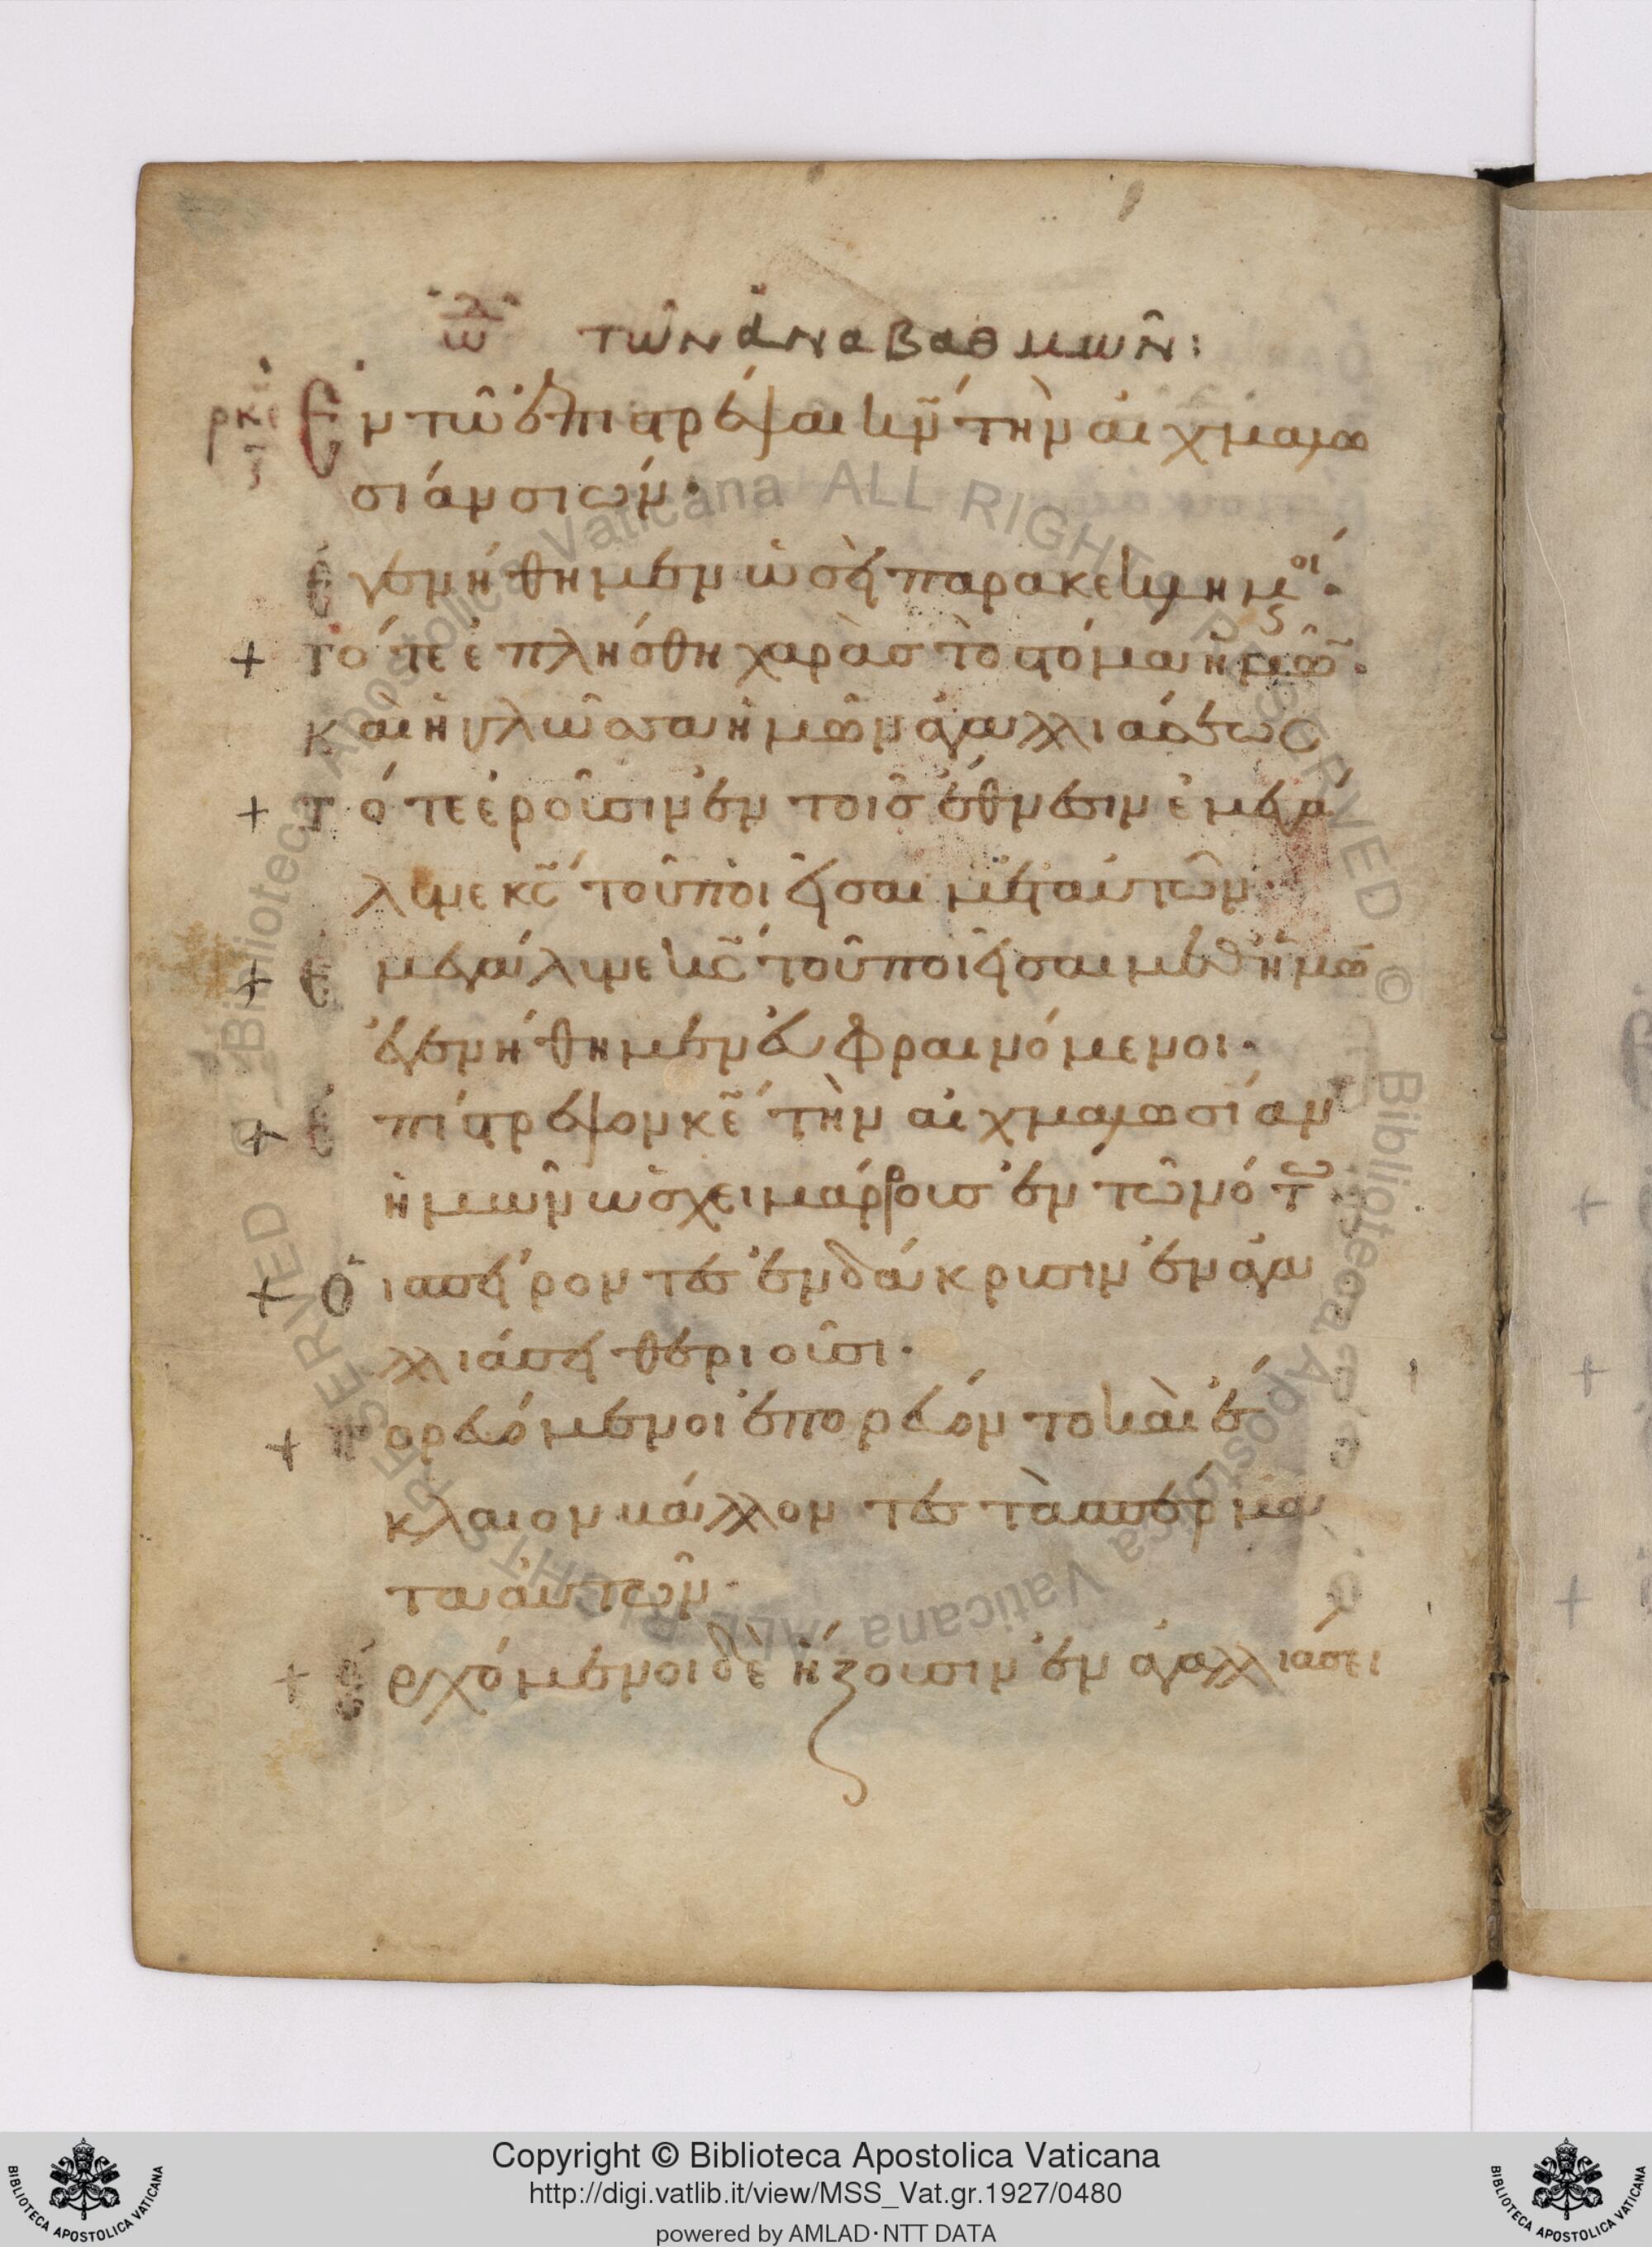 ὠδ τῶν ἀναβαθμῶν:
ρκε Ἐν τῶ ἐπιστρέψαι κν̃ τὴν αἰχμαλω
σίαν σιών·
ἐγενήθημεν ὡσεὶ παρακεκλημένοι·
+ τότε ἐπλήσθη χαρᾶς τὸ στόμα ἡμῶν·
καὶ ἡ γλῶσσα ἡμῶν ἀγαλλιάσεως
+ τότε ἐροῦσιν ἐν τοῖς ἔθνεσιν ἐμεγά
λυνε κς̃ τοῦ ποιῆσαι μετ αὐτῶν·
+ ἐ μεγάλυνε κς̃ τοῦ ποιῆσαι μεθ ἡμῶ
ἐγενήθημεν εὐφραινόμενοι·
+ ἐ πίστρεψον κε̃ τὴν αἰχμαλωσίαν
ἡμῶν ὡς χειμάρρους ἐν τῶ νότω·
+ ὁ ι σπείροντες ἐν δάκρυσιν ἐν ἀγα
λλιάσει θεριοῦσι·
+ π ορευόμενοι ἐπορεύοντο καὶ ἔ
κλαιον βάλλοντες τὰ σπέρμα
τα αὐτῶν·
+ ἐ ρχόμενοι δὲ ἥξουσιν ἐν ἀγαλλιάσει
Copyright © Biblioteca Apostolica Vaticana
http://digi.vatlib.it/view/MSS_Vat.gr.1927/0480
powered by AMLAD·NTT DATA